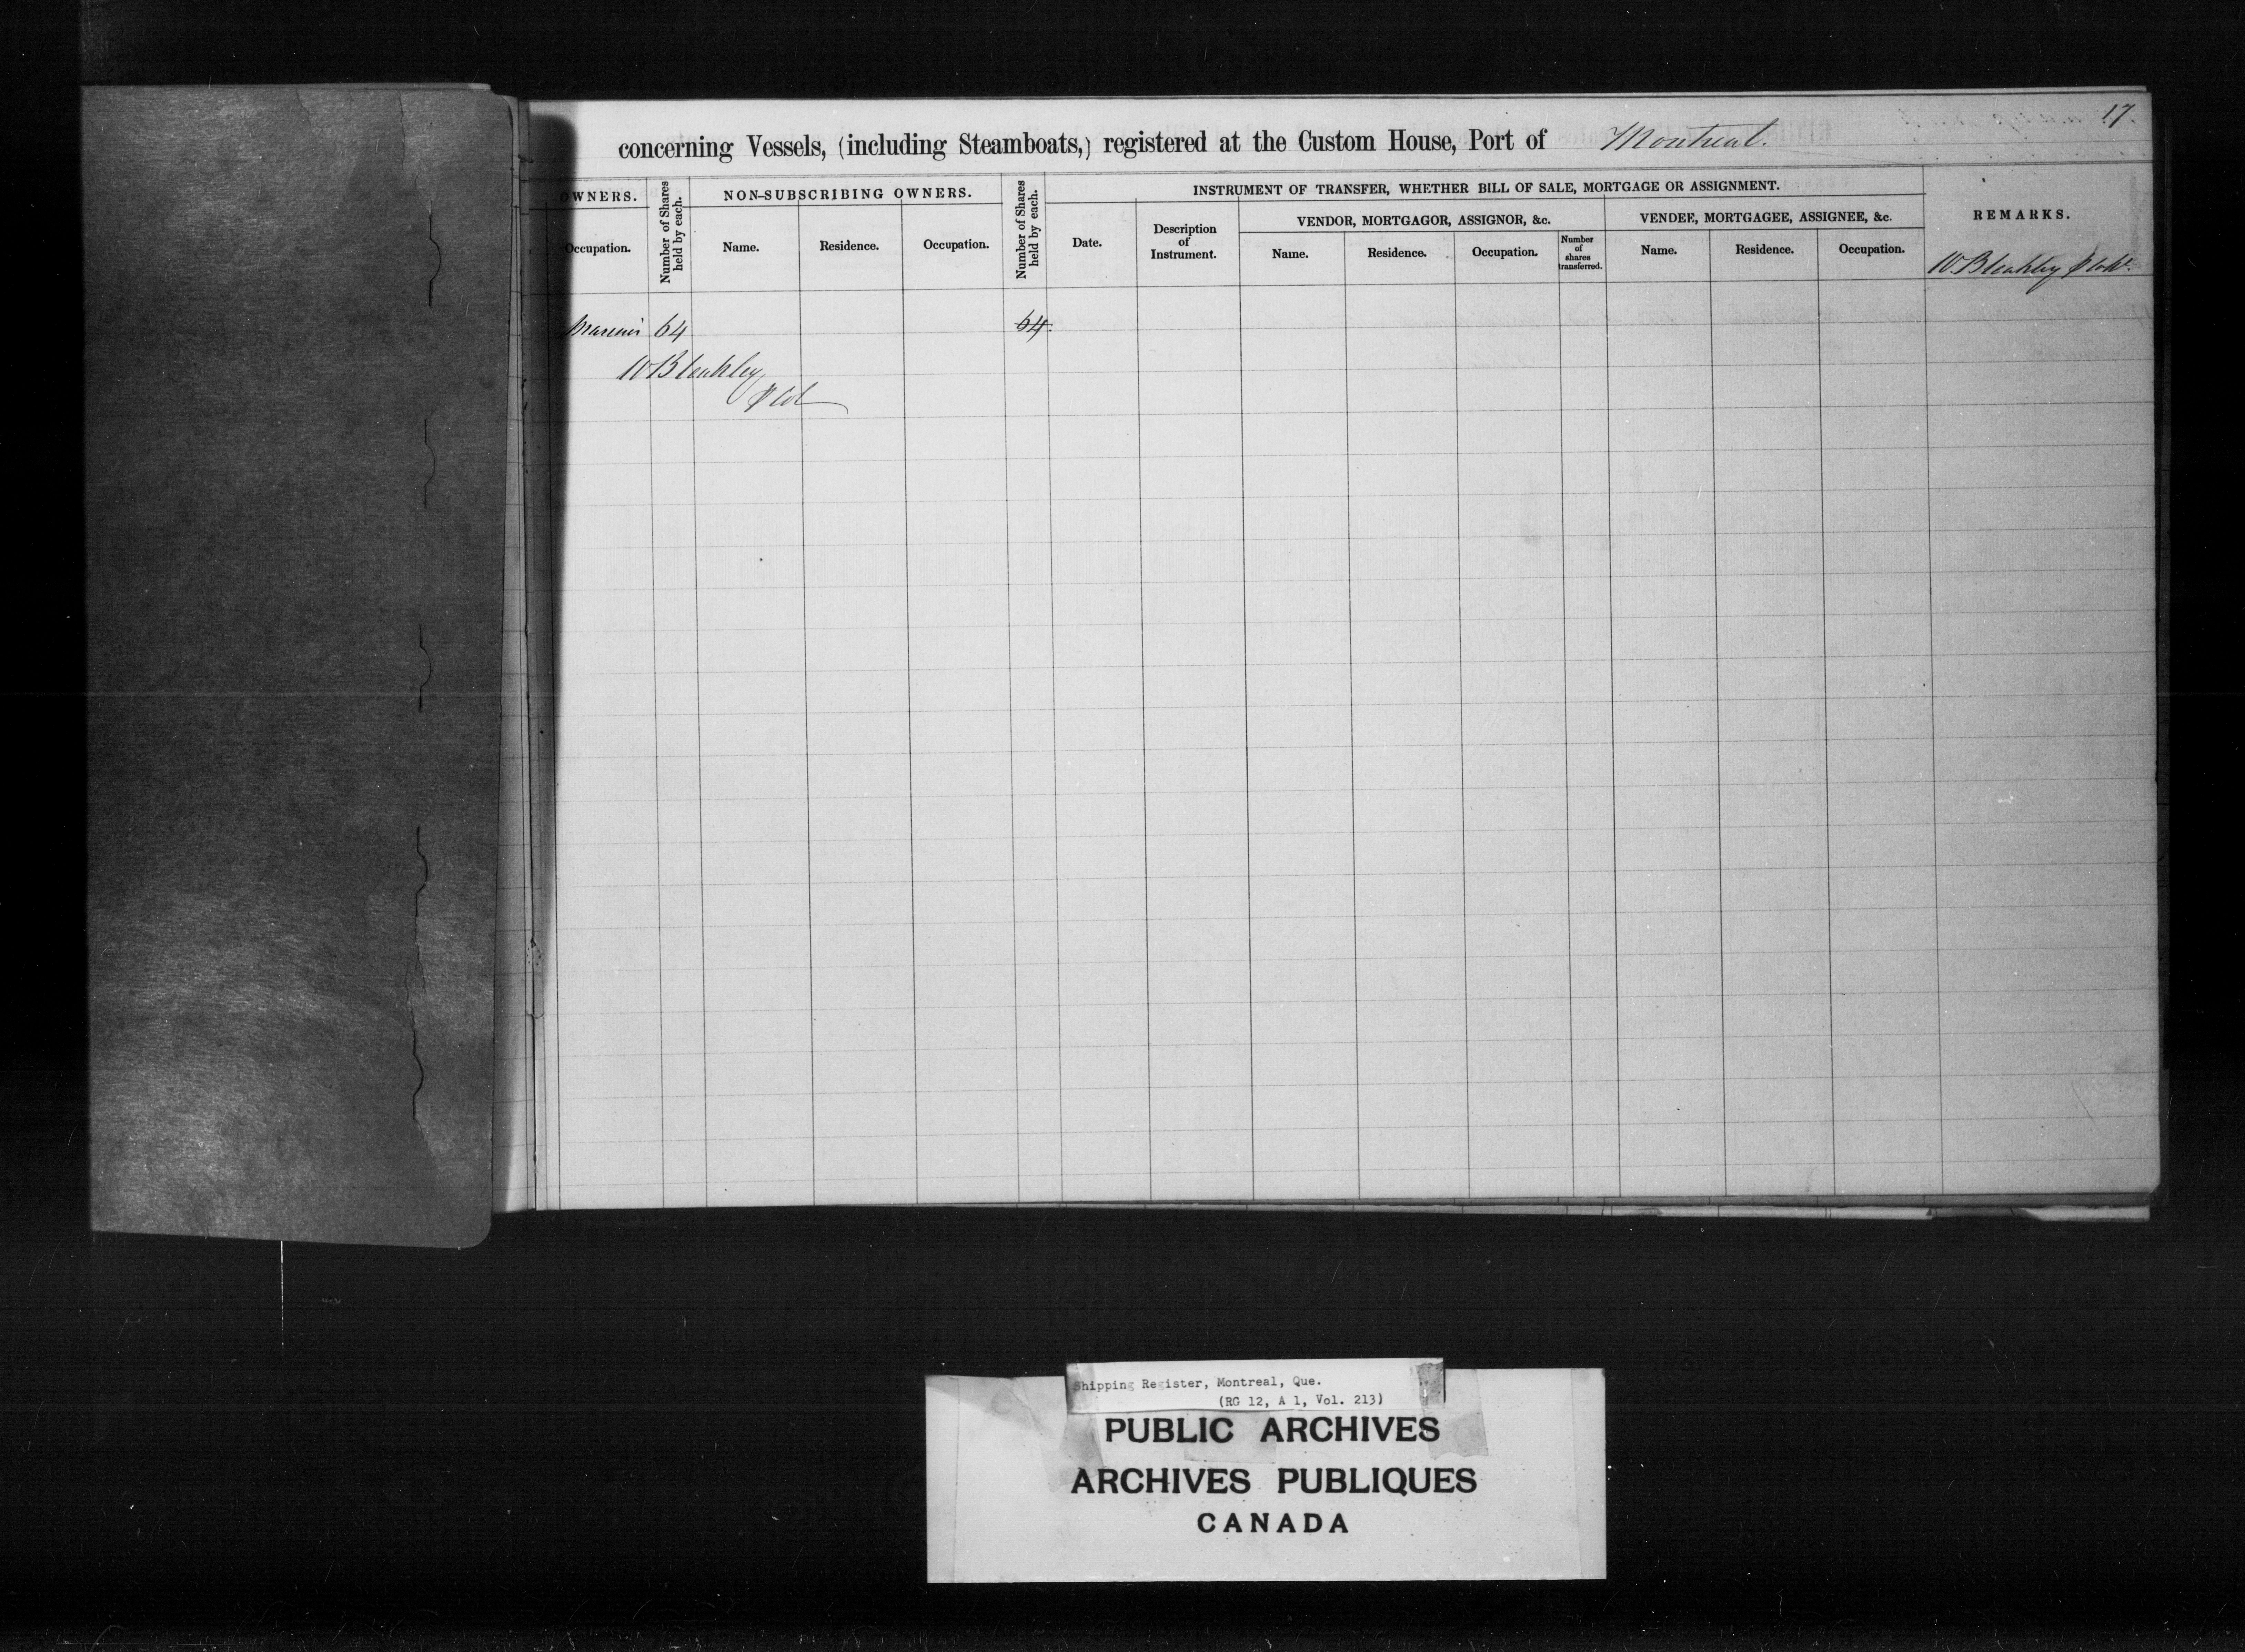 17.
concerning Vessels, (including Steamboats,) registered at the Custom House, Port of Montreal.
OWNERS.
Number of Shares held by each.
NON-SUBSCRIBING OWNERS.
Number of Shares held by each.
INSTRUMENT OF TRANSFER, WHETHER BILL OF SALE, MORTGAGE OR ASSIGNMENT.
REMARKS.
VENDOR, MORTGAGOR, ASSIGNOR, &c.
VENDEE, MORTGAGEE, ASSIGNEE, &c.
Occupation.
Name.
Residence.
Occupation.
Date.
Description of Instrument.
Name.
Residence.
Occupation.
Number of shares transferred.
Name.
Residence.
Occupation.
W Bleakley
64
64.
W Bleakley
Shipping Register, Montreal, Que.
(RG 12, A 1, Vol. 213)
PUBLIC ARCHIVES
ARCHIVES PUBLIQUES
CANADA